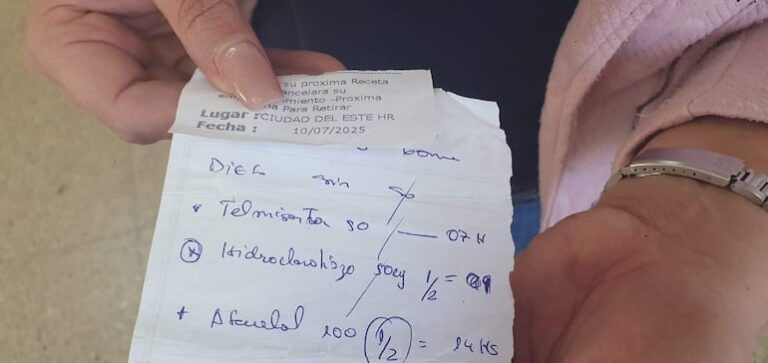 su proxima Receta
ancelara su
imiento -Proxima
na Para Retirar
Lugar : CIUDAD DEL ESTE HR
Fecha : 10/07/2025
Dieta sin
* Telmisarta 80 — 07 H
* Hidroclorotiazo 50mg 1/2 =
* Atenolol 100 1/2 = 14 HS